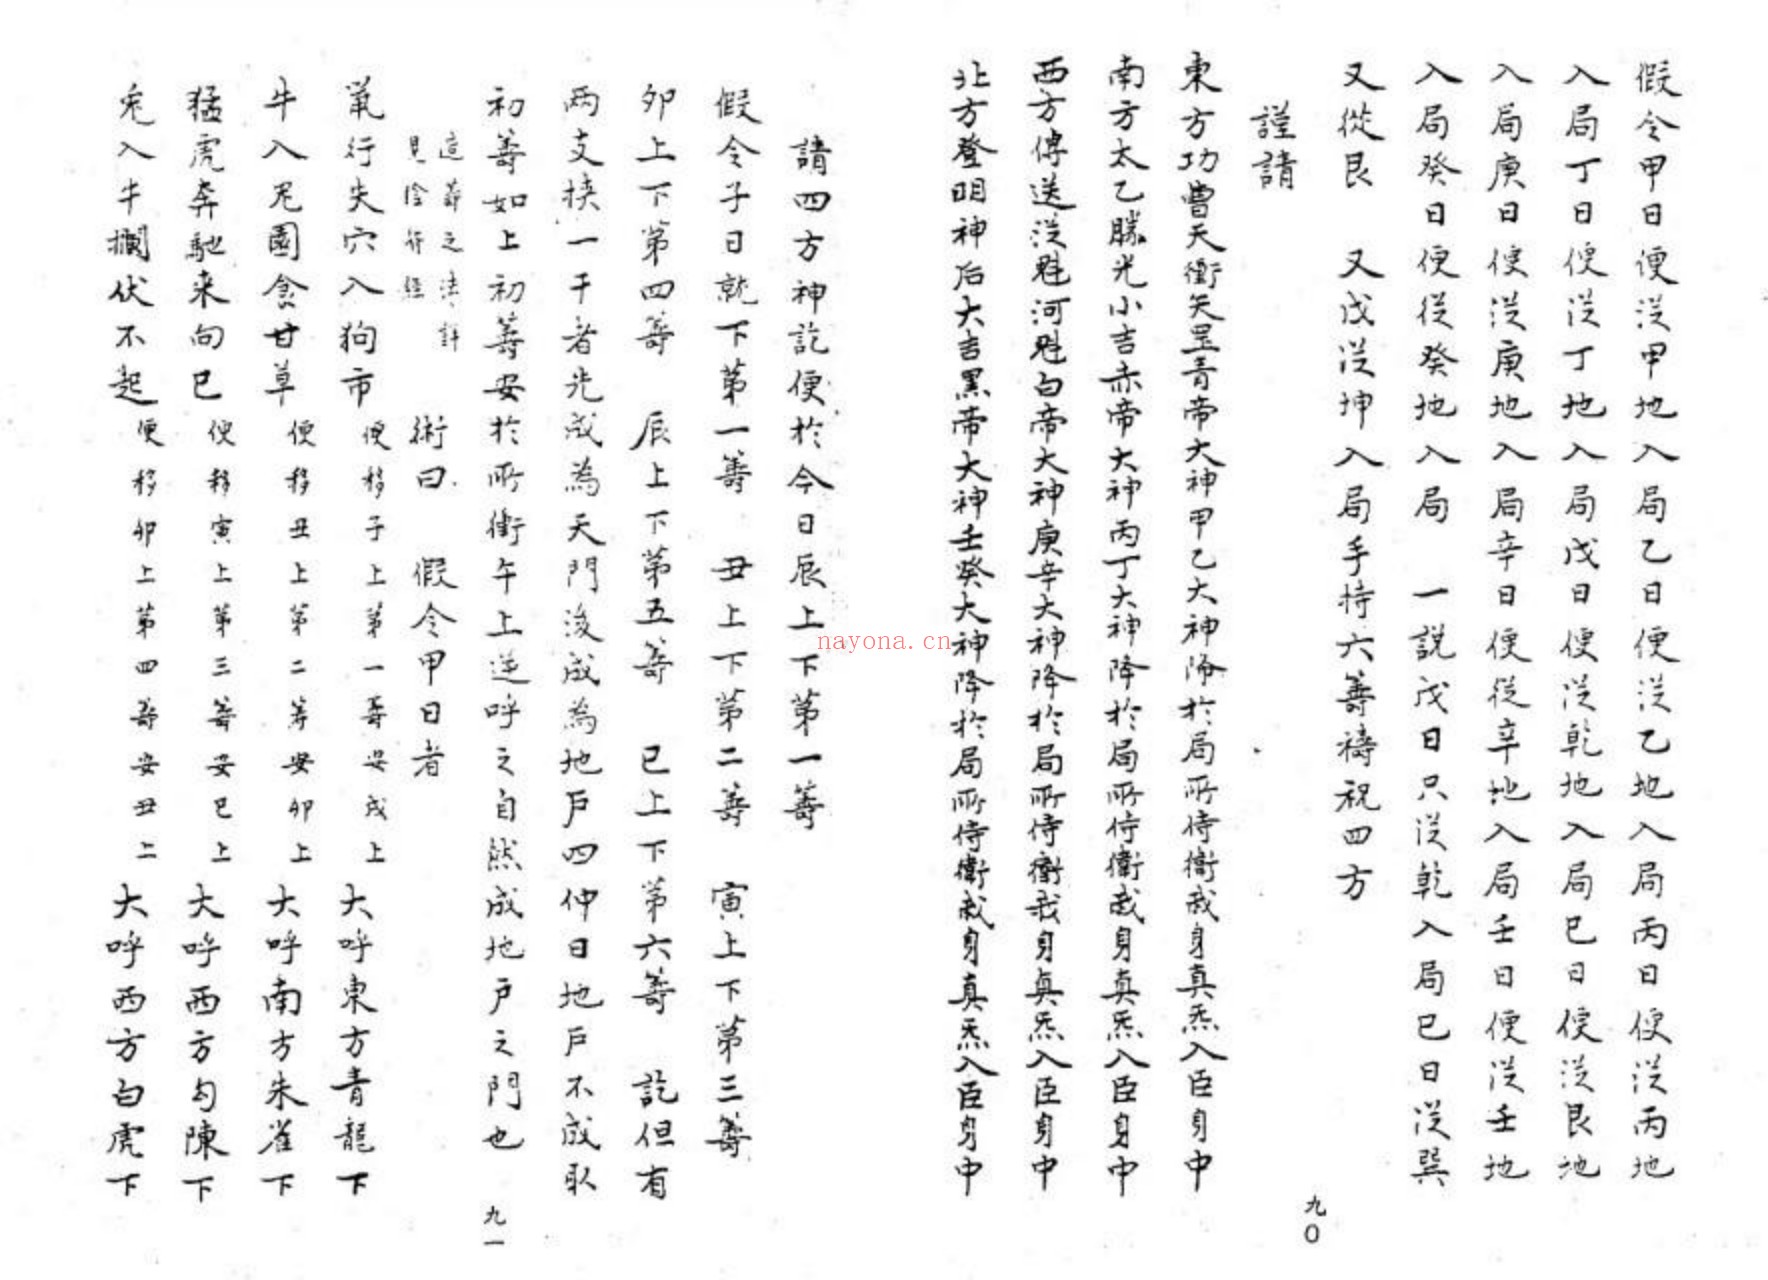 假令甲日便従甲地入局乙日便従乙地入局丙日便従丙地
入局丁日便従丁地入局戊日便従乾地入局巳日便従艮地
入局庚日便従庚地入局辛日便従辛地入局壬日便従壬地
入局癸日便従癸地入局 一説戊日只従乾入局巳日従巽
又従艮 又戊従坤入局手持六筭禱祝四方
謹請
東方功曹天衝天罡青帝大神甲乙大神降於局所侍衛我身真炁入臣身中
南方太乙勝光小吉赤帝大神丙丁大神降於局所侍衛我身真炁入臣身中
西方傳送従魁河魁白帝大神庚辛大神降於局所侍衛我身真炁入臣身中
北方登明神后大吉黑帝大神壬癸大神降於局所侍衛我身真炁入臣身中
九〇
請四方神訖便於今日辰上下第一筭
假令子日就下第一筭 丑上下第二筭 寅上下第三筭
卯上下第四筭 辰上下第五筭 巳上下第六筭 訖但有
兩支挾一干者先成為天門後成為地戶四仲日地戶不成取
初筭如上初筭安於所衝午上逆呼之自然成地戶之門也
這筭之法詳
見陰符經
術曰 假令甲日者
鼠行失穴入狗市 便移子上第一筭安戌上 大呼東方青龍下
牛入兎園食甘草 便移丑上第二筭安卯上 大呼南方朱雀下
猛虎奔馳来向巳 便移寅上第三筭安巳上 大呼西方勾陳下
兎入牛欄伏不起 便移卯上第四筭安丑上 大呼西方白虎下
九一
nayona.cn